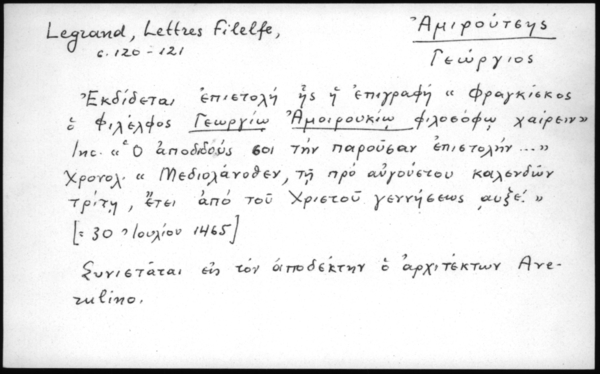 Legrand, Lettres Filelfe,
σ. 120-121
Ἀμιρούτσης
Γεώργιος
Ἐκδίδεται ἐπιστολή ἧς ἡ ἐπιγραφή « Φραγκίσκος
ὁ Φιλέλφος Γεωργίῳ Ἀμοιρουκίῳ φιλοσόφῳ χαίρειν»
Inc. « Ὁ ἀποδιδούς σοι τήν παροῦσαν ἐπιστολήν ...»
Χρονολ. « Μεδιολάνοθεν, τῇ πρό αὐγούστου καλενδῶν
τρίτῃ, ἔτει ἀπό τοῦ Χριστοῦ γεννήσεως ͵αυξε΄. »
[= 30 Ἰουλίου 1465]
Συνιστᾶται εἰς τόν ἀποδέκτην ὁ ἀρχιτέκτων Ave-
rulino.